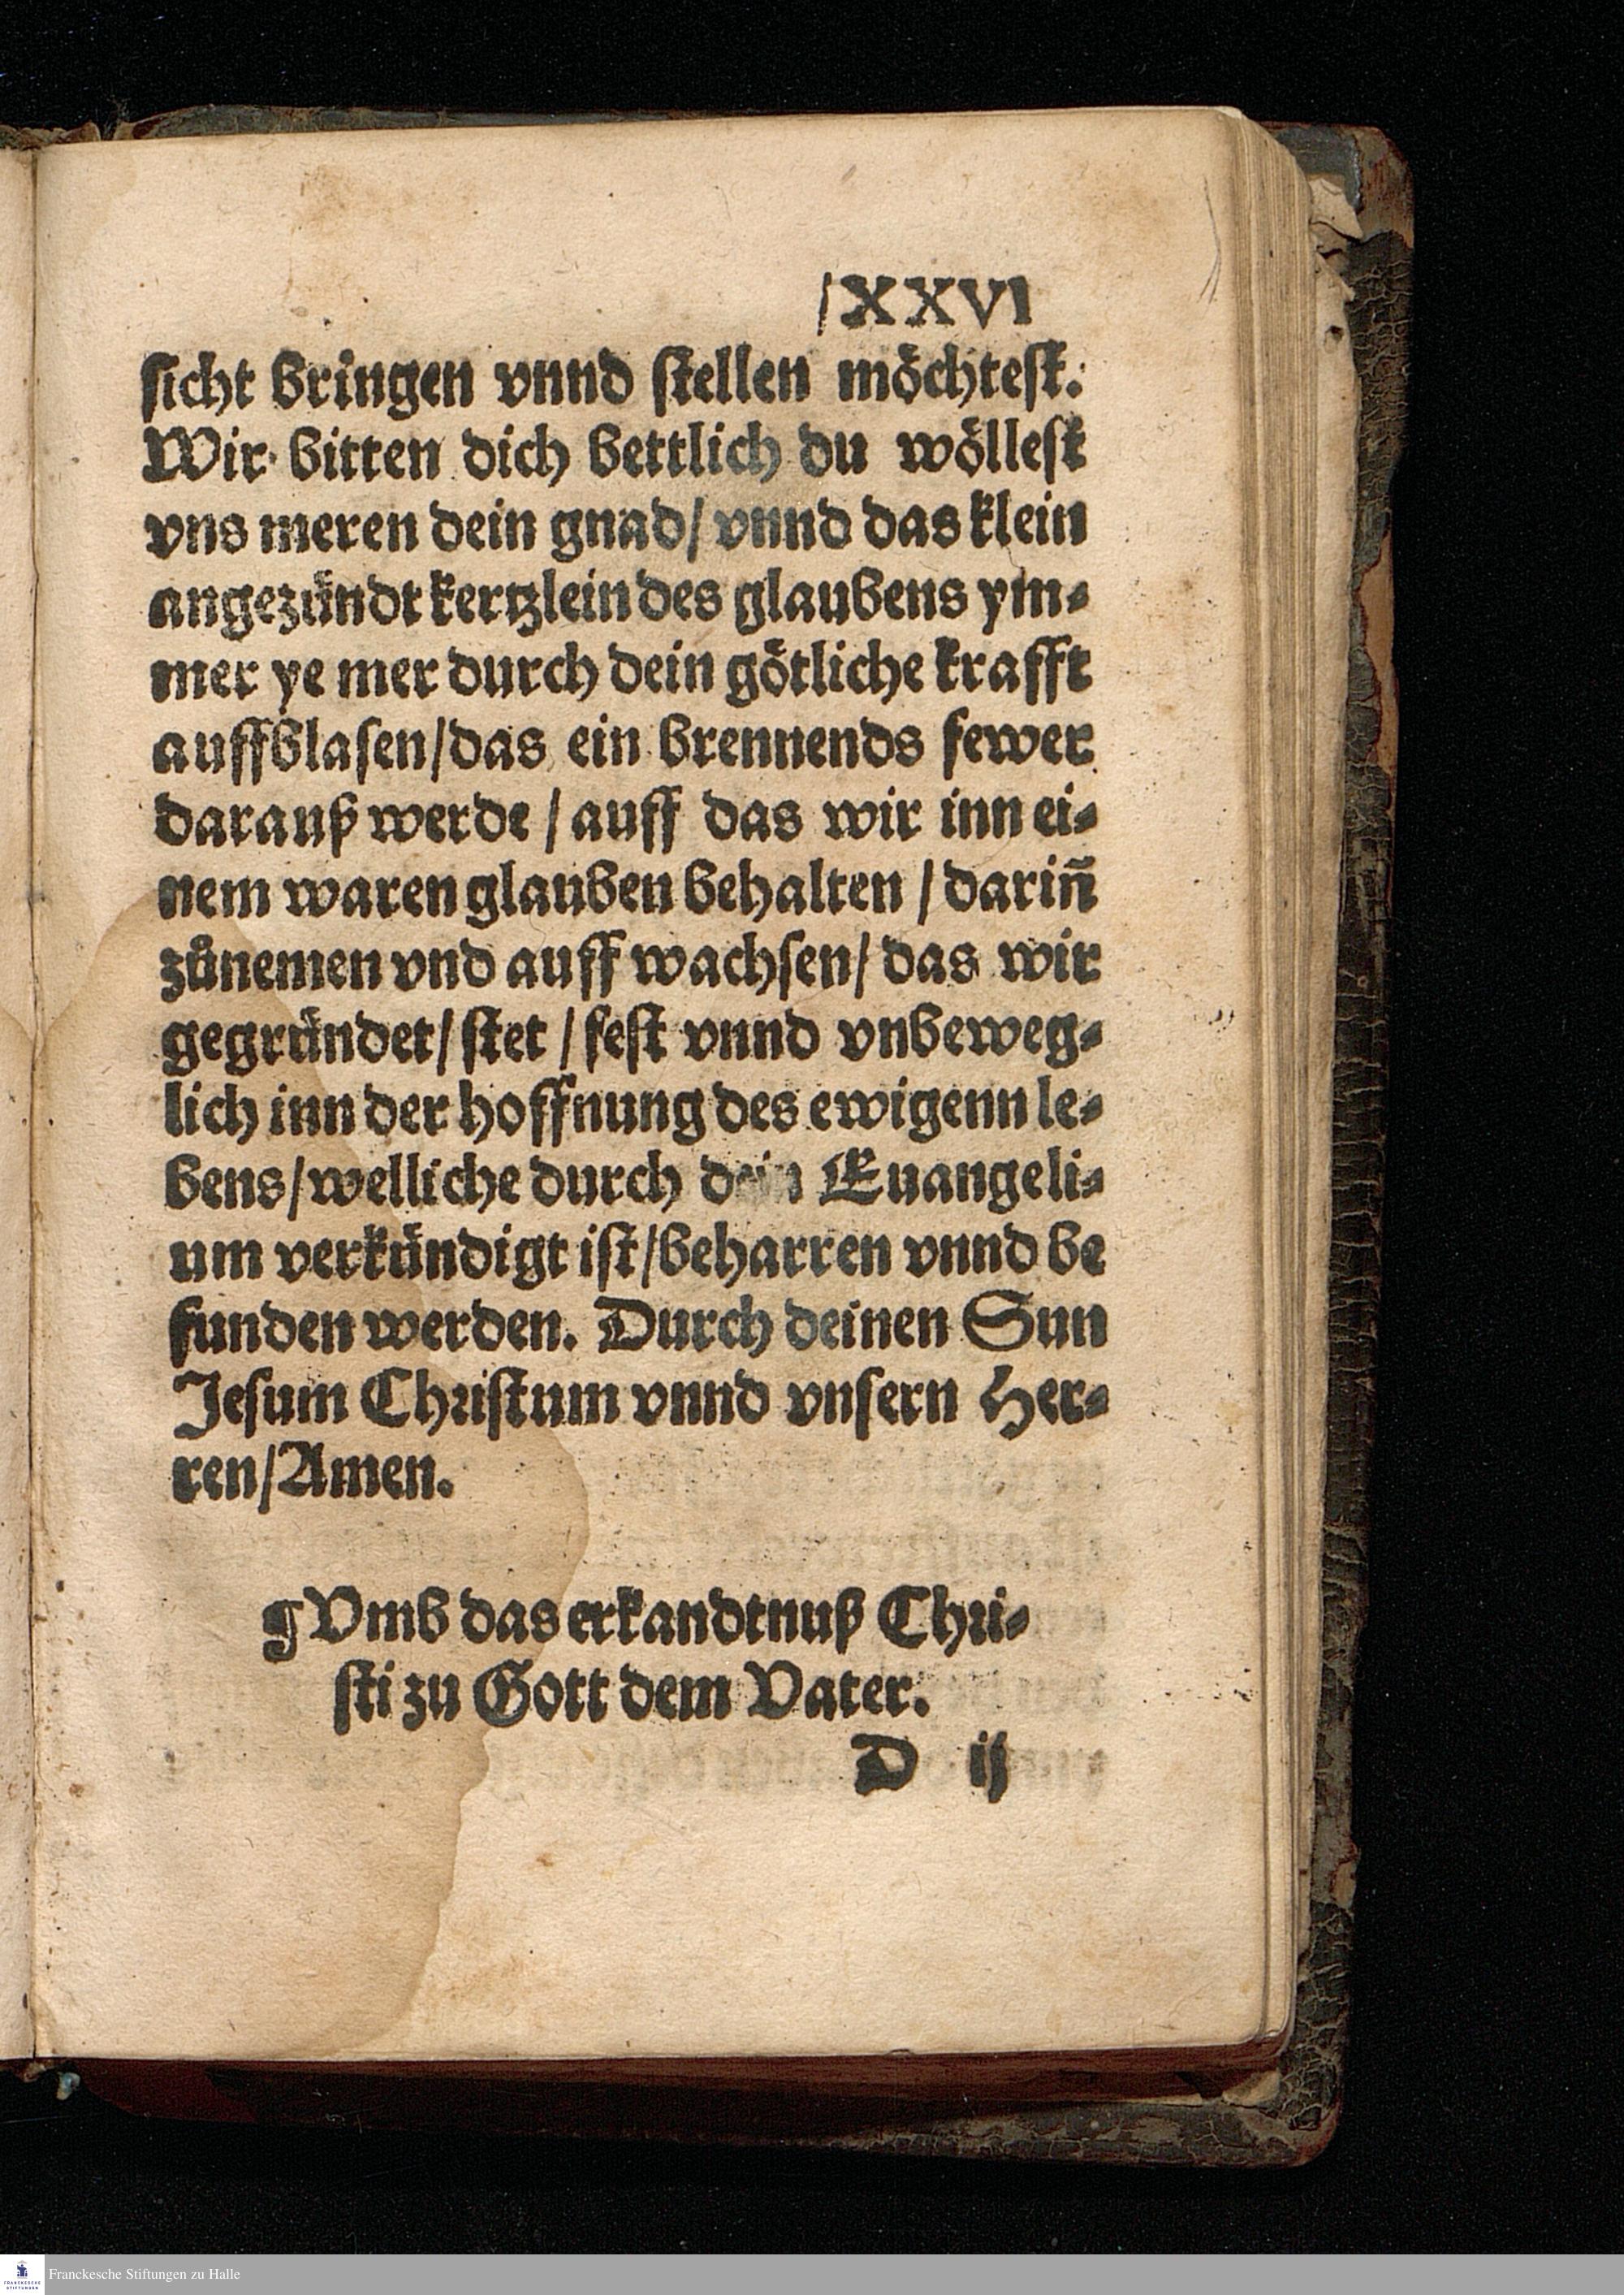 /XXVI
sicht bringen vnnd stellen möchtest.
Wir bitten dich bettlich du wöllest
vns meren dein gnad/ vnnd das klein
angezündt kertzlein des glaubens ym⸗
mer ye mer durch dein götliche krafft
auffblasen/das ein brennends fewer
darauß werde / auff das wir inn ei⸗
nem waren glauben behalten / dariñ
zůnemen vnd auff wachsen/ das wir
gegründet/ stet / fest vnnd vnbeweg⸗
lich inn der hoffnung des ewigenn le⸗
bens/welliche durch dein Euangeli⸗
um verkündigt ist/beharren vnnd be
funden werden. Durch deinen Sun
Jesum Christum vnnd vnsern Her⸗
ren/Amen.
¶Vmb das erkandtnuß Chri⸗
sti zu Gott dem Vater.
D ij
FRANCKESCHE STIFTUNGEN
Franckesche Stiftungen zu Halle